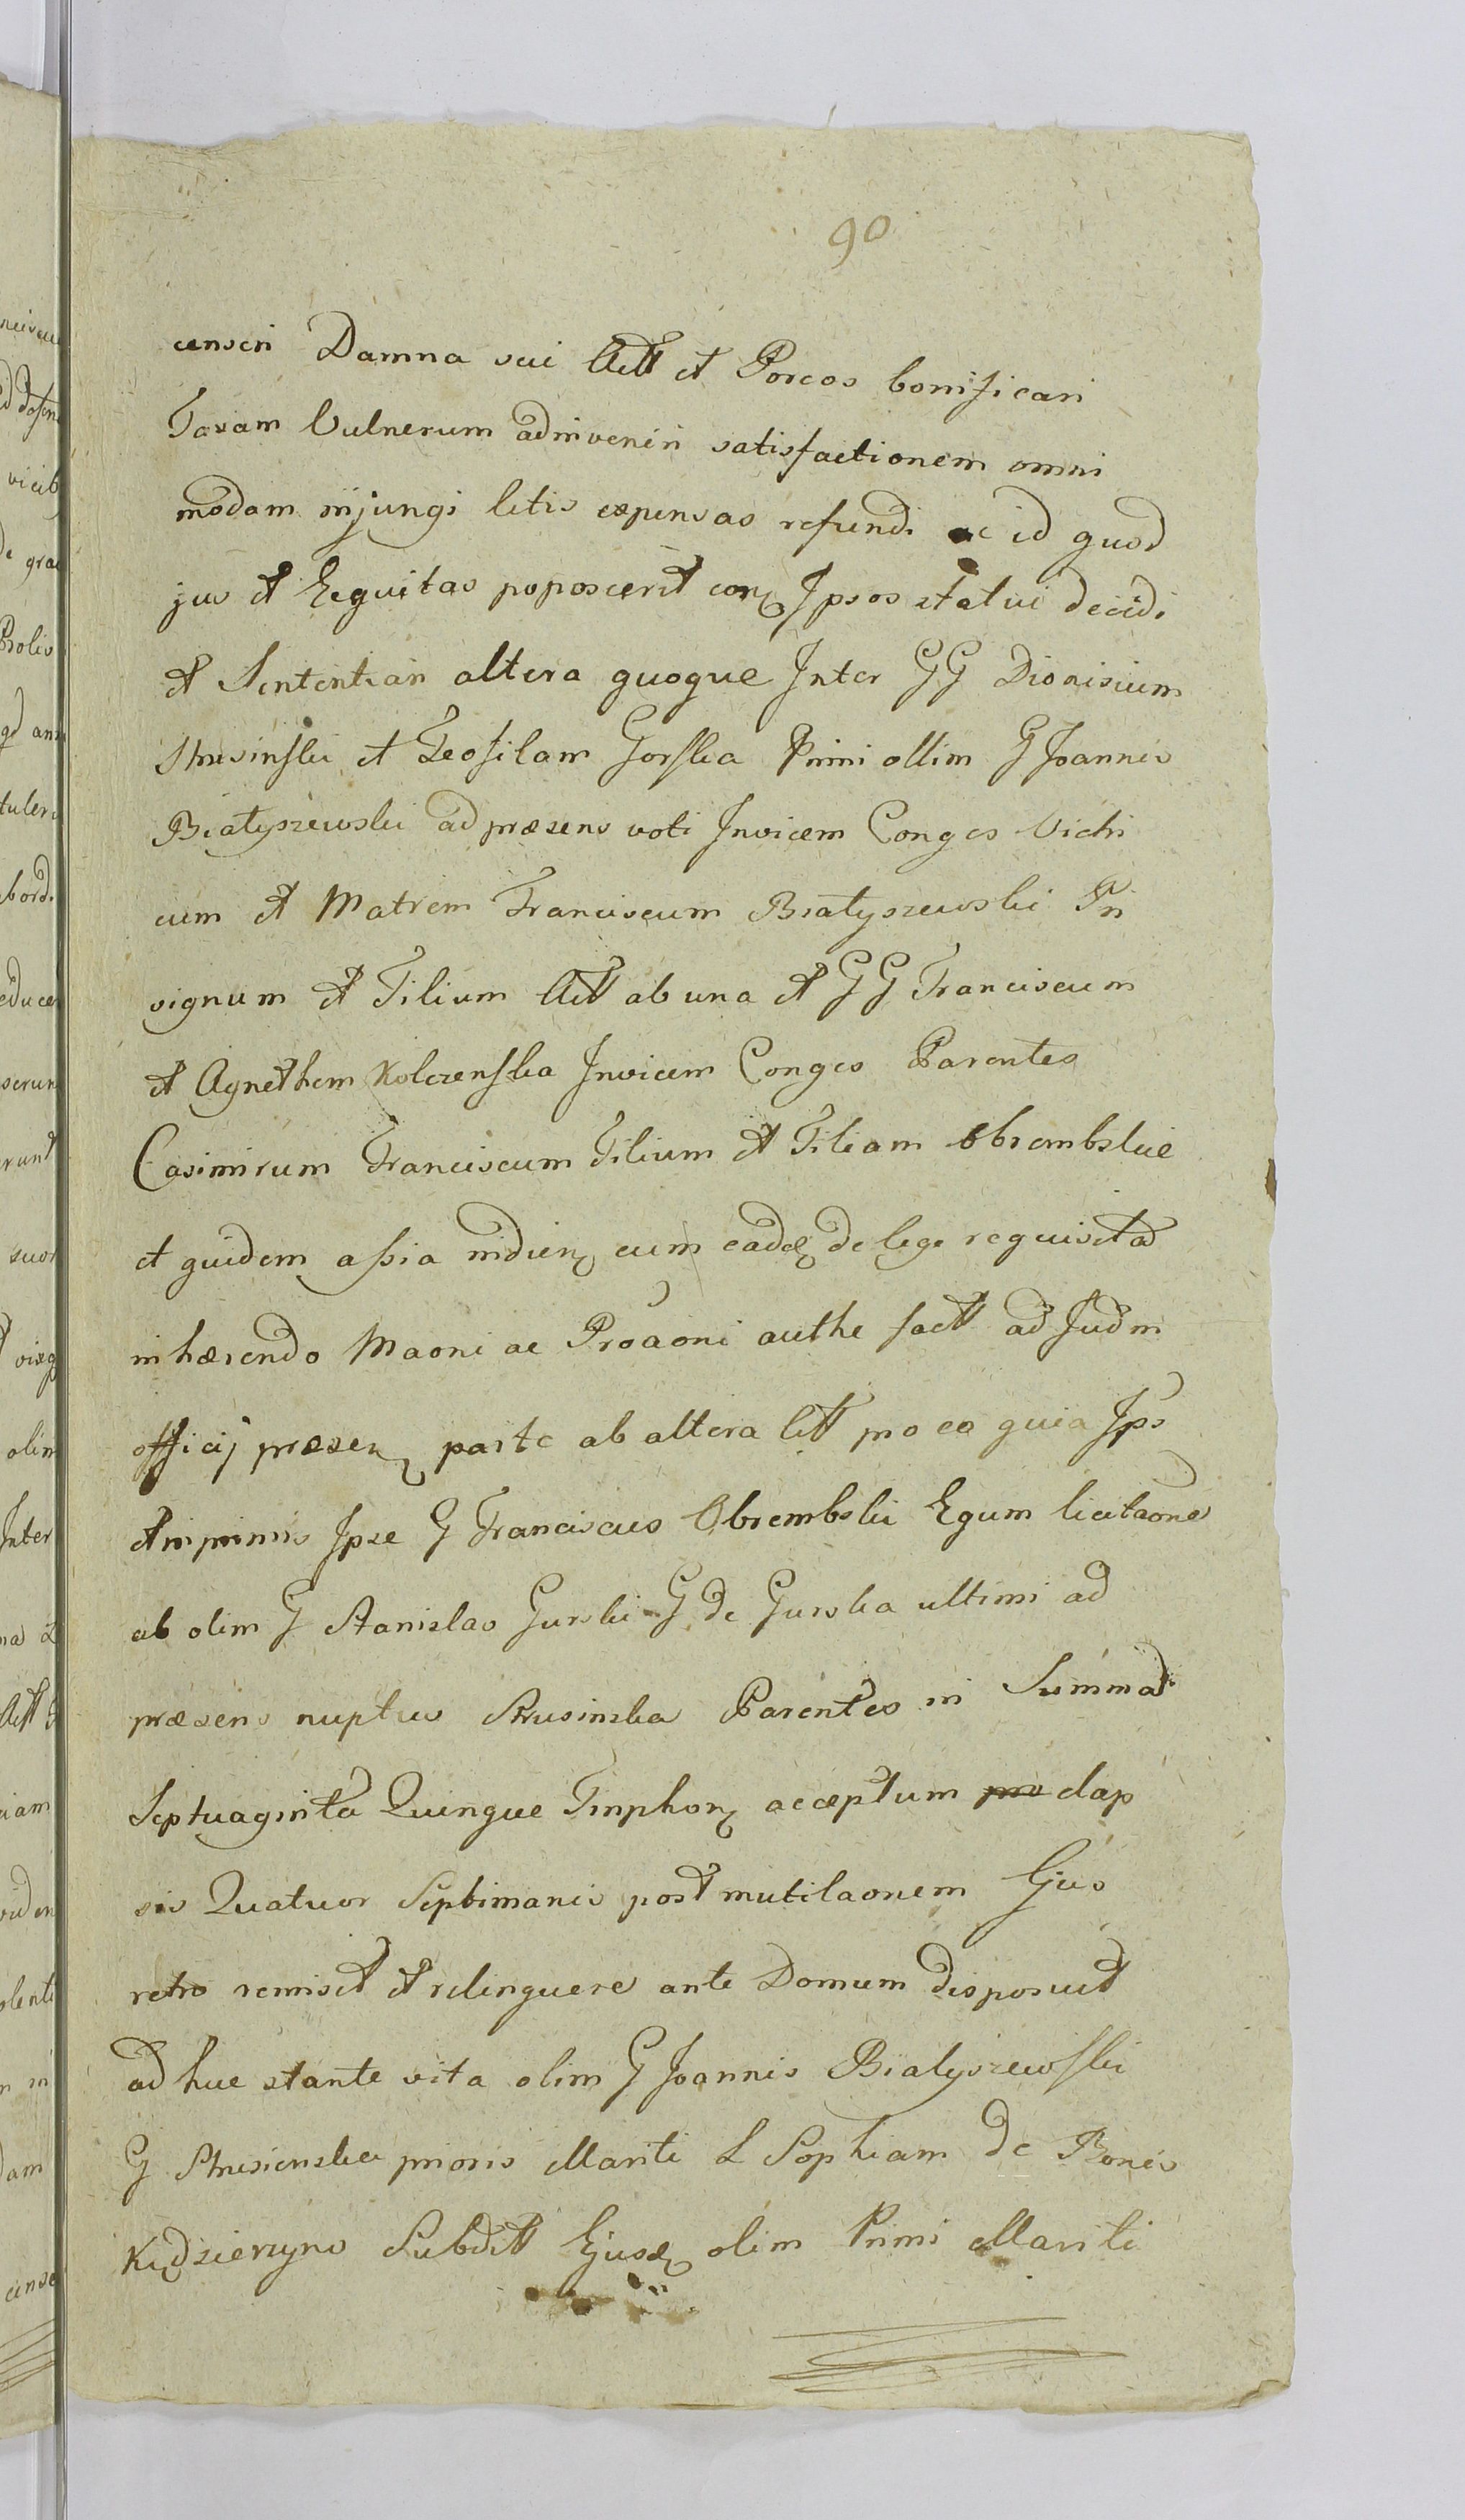 90
censeri Damna sui Actt et Porcos bonificari
Taxam Vulnerum adinveniri satisfactionem omni
modam injungi litis expensas refundi ac id quod
jus et Eequitas poposcerit con Ipsos statui decidi
et Sententiari altera quoque Inter GG Dionisium
Strusinski et Teofilam Gorska Primi ollim G Joannis
Białyszewski ad præsens voti Invicem Conges Vichi
cum et Matrem Franciscum Białyszewski Pri
vignum et Filium Actt ab una et GG Franciscum
et Agnethem Kolczenska Invicem Conges Parentes
Casimirum Franciscum Filium et Filiam Obrembskie
et quidem assia indien cum eade de lege requisita
inhærendo Maoni ac Proaoni authe factt ad Judm
officij præsen parte ab altera Citt pro eo quia Ips
et inprimis Ipse G Franciscus Obrembski Equm licitaone
ab olim G Stanislao Gurski G de Gurska ultimi ad
præsens nuptus Strusinska Parentes in Summa
Septuaginta Quinque Tinphor acceptum elap
sis Quatuor Septimanis post mutilaonem Ejus
retro remisit et relinquere ante Domum disposuit
ad huc stante vita olim G Joannis Białyszewski
G Strusienska prioris Mariti L Sophiam de Bonis
Kędzierzyno Subditt Ejusd olim Primi Mariti